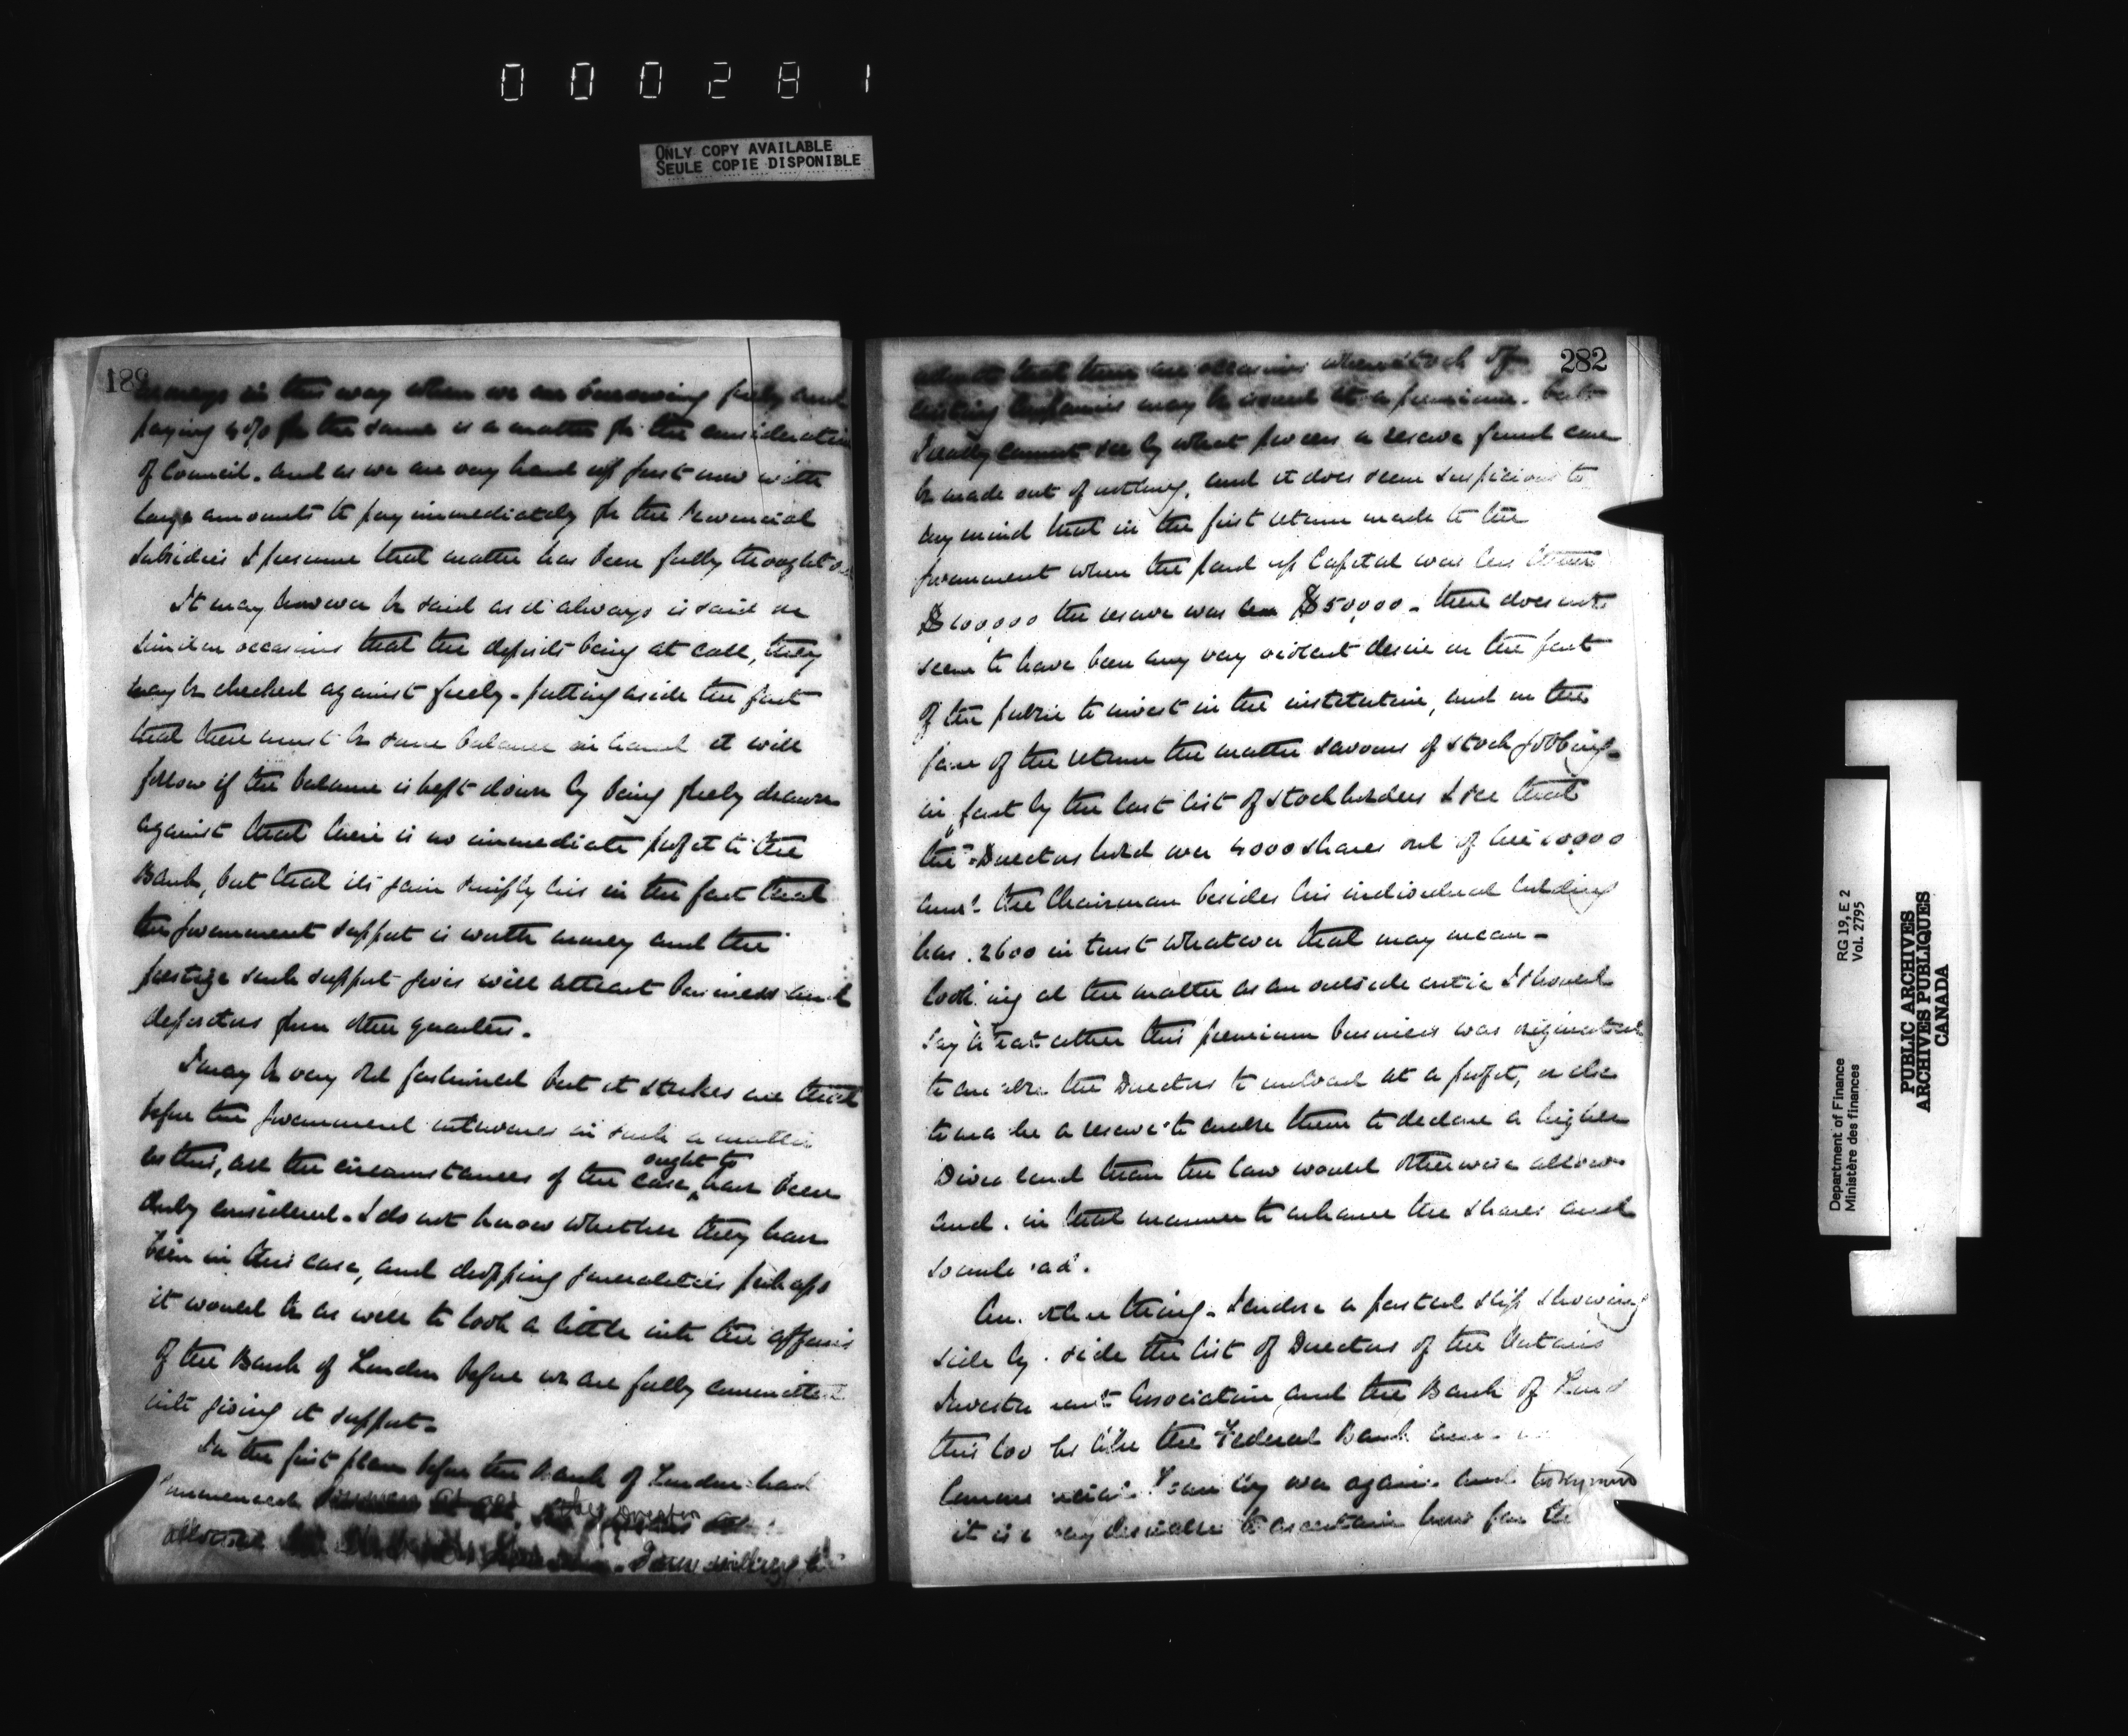 000281
ONLY COPY AVAILABLE
SEULE COPIE DISPONIBLE
in this way when we are borrowing freely and
paying 4% for the same is a matter for the consideration
of Council. and as we are very hard up just now with
large amounts to pay immediately for the Provincial
Subsidies I presume that matter has been fully thought
It may however be said as it always is said on
similar occasions that the deposits being at call, they
may be checked against freely. putting aside the fact
that there must be some balance in hand it will
follow if the balance is kept down by being freely drawn
against that there is no immediate profit to the
Bank, but that its gain simply lies in the fact that
the Government support is worth money and the
prestige such support gives will attract business and
depositors from other quarters.
I may be very old fashioned but it strikes me that
before the Government intervenes in such a matter
ought to
as this, all the circumstances of the case, have been
duly considered. I do not know whether they have
been in this case, and dropping generalities perhaps
it would be as well to look a little into the affairs
of the Bank of London before we are fully committed
into giving it support.
In the first place before the Bank of London had
Commenced business at all,
I am willing to
282
that there are occasions when stock of
existing Companies may be issued at a premium. but
I really cannot see by what process a reserve fund can
be made out of nothing, and it does seem suspicious to
my mind that in the first return made to the
Government when the paid up Capital was less than
$100,000 the reserve was $50,000. there does not
seem to have been any very violent desire on the part
of the public to invest in the institution, and on the
face of the return the matter savours of stock jobbing.
in fact by the last list of stockholders I see that
the Directors hold over 4000 shares out of the 10,000
and the Chairman besides his individual holding
has 2600 in trust whatever that may mean.
looking at the matter as an outside critic I should
say that either this premium business was originated
to enable the Directors to unload at a profit, or else
to make a reserve to enable them to declare a higher
Dividend than the law would otherwise allow
and in that manner to enhance the shares and
so unload.
Another thing. I enclose a pasted slip showing
side by side the list of Directors of the Ontario
Investment Association and the Bank of Lond
this looks like the Federal Bank and
Commercial Loan Coy over again. and to my mind
it is very desirable to ascertain how far the
Department of Finance
Ministère des finances
RG 19, E 2
Vol. 2795
PUBLIC ARCHIVES
ARCHIVES PUBLIQUES
CANADA